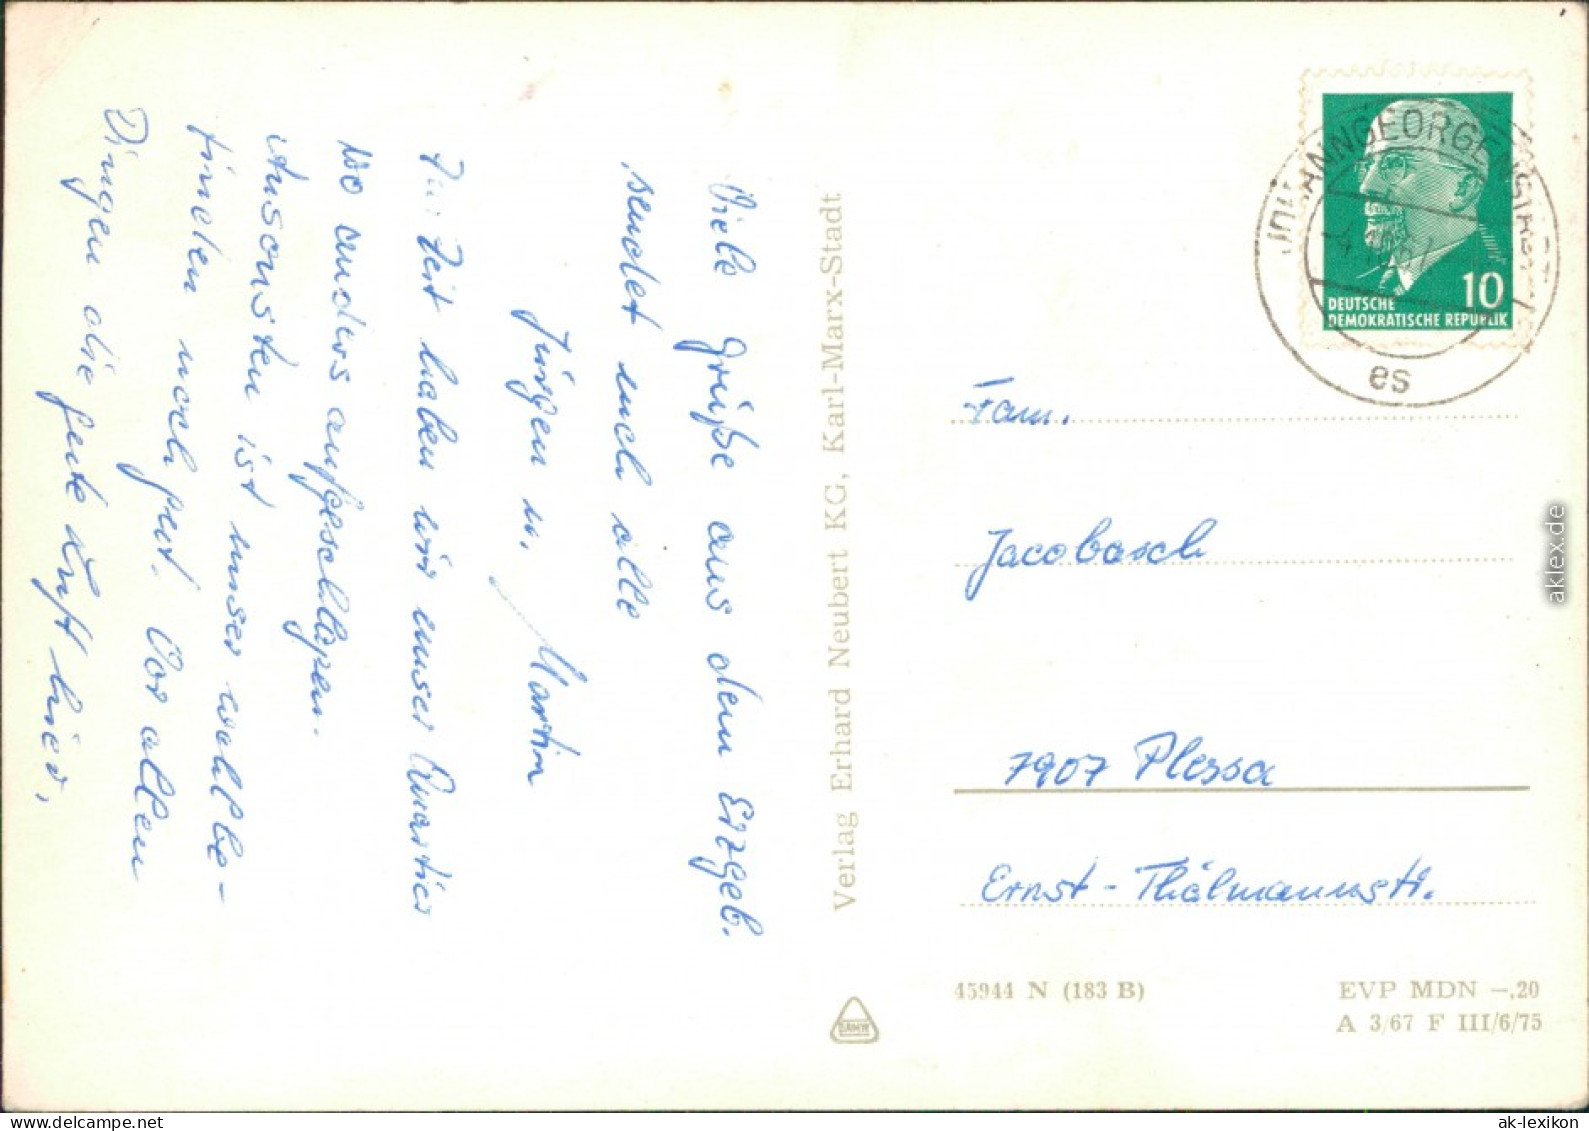 Viele Grüße aus dem Erzgeb.
sendet euch alle
Jürgen u. Martin
Zeit haben wir unser Quartier
wo anders aufgeschlagen.
Ansonsten ist unser wohlbe-
finden noch gut. Vor allen
Dingen die gute Luft hier.
Verlag Erhard Neubert KG, Karl-Marx-Stadt
DAMW
JOHANNGEORGENSTADT
es
10
DEUTSCHE
DEMOKRATISCHE REPUBLIK
Fam.
Jacobasch
7907 Plessa
Ernst-Thälmannstr.
45944 N (183 B)
EVP MDN –.20
A 3/67 F III/6/75
aklex.de
ak-lexikon